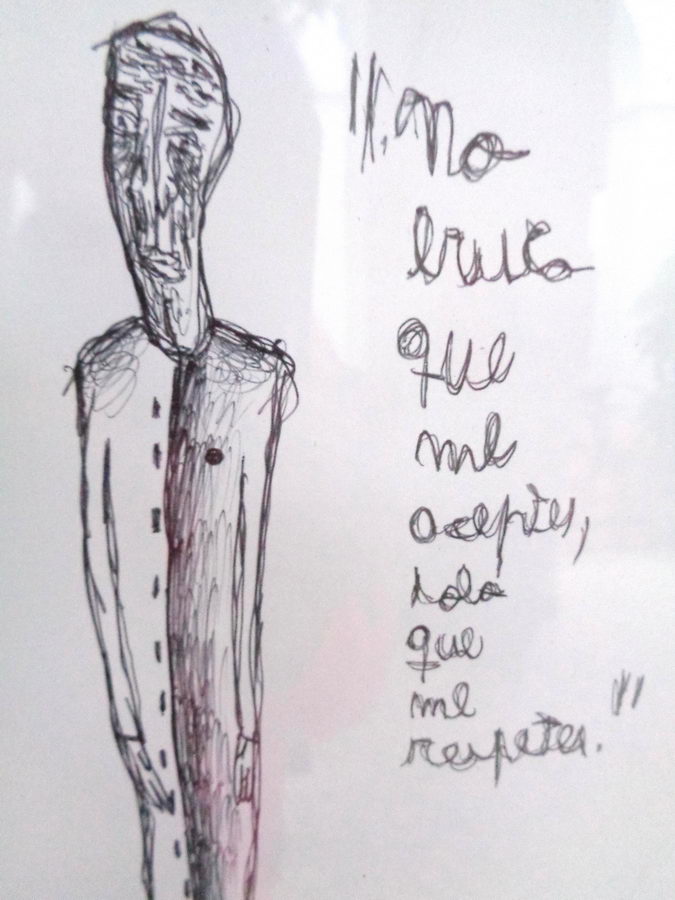 "No
busco
que
me
aceptes,
solo
que
me
respetes."